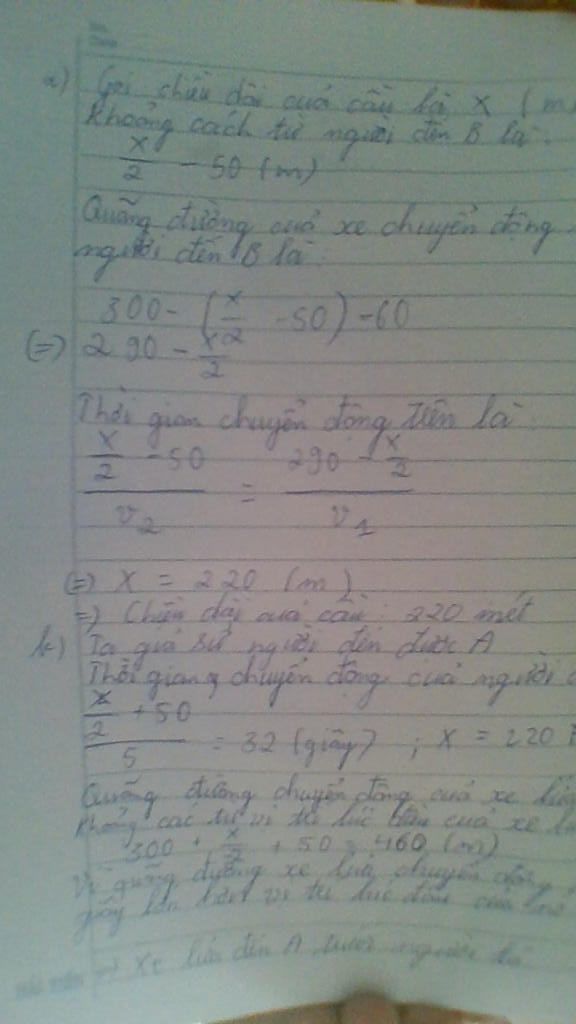 a) Gọi chiều dài quả cầu là x (m
Khoảng cách từ người đến B là:
x/2 - 50 (m)
Quãng đường quả xe chuyển động
người đến B là:
300 - (x/2 - 50) - 60
(=) 290 - x/2
Thời gian chuyển động trên là:
(x/2 - 50)/v2 = (290 - x/2)/v1
(=) x = 220 (m)
=) Chiều dài quả cầu: 220 mét
b) Ta giả sử người đến được A
Thời giang chuyển động của người
(x/2 + 50)/5 = 32 (giây) ; x = 220
Quãng đường chuyển động của xe lửa
khoảng các từ vị trí lúc đầu của xe
300 + x/2 + 50 = 460 (m)
Vì quãng đường xe lửa chuyển động
giây lớn hơn vị trí lúc đầu của
=) Xe lửa đến A trước người